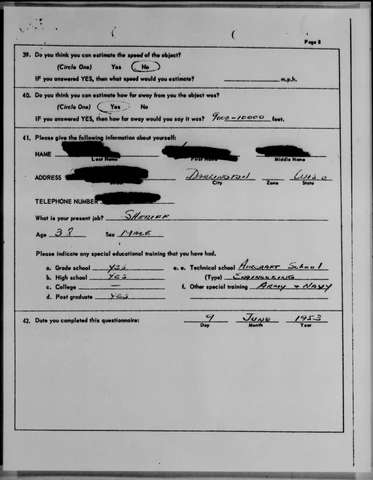 Page 8
39. Do you think you can estimate the speed of the object?
(Circle One) Yes No
IF you answered YES, then what speed would you estimate? m.p.h.
40. Do you think you can estimate how far away from you the object was?
(Circle One) Yes No
IF you answered YES, then how far away would you say it was? 9000-10000 feet.
41. Please give the following information about yourself:
NAME
Last Name First Name Middle Name
ADDRESS DARLINGTON WISC
Street City Zone State
TELEPHONE NUMBER
What is your present job? SHERIFF
Age 38 Sex MALE
Please indicate any special educational training that you have had.
a. Grade school YES e. Technical school AIRCRAFT SCHOOL
b. High school YES (Type) ENGINEERING
c. College — f. Other special training ARMY & NAVY
d. Post graduate YES
42. Date you completed this questionnaire: 9 JUNE 1953
Day Month Year